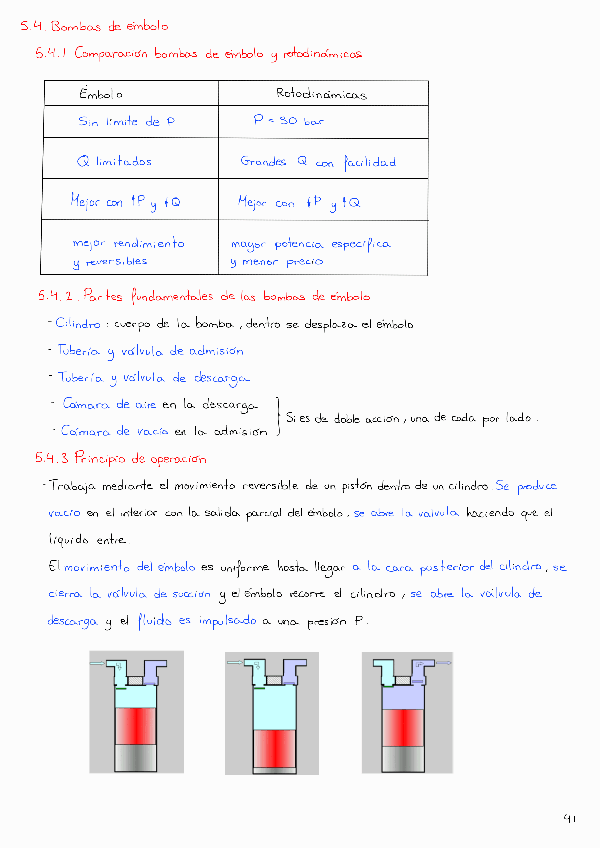 5.4. Bombas de émbolo
5.4.1 Comparación bombas de émbolo y rotodinámicas
Émbolo Rotodinámicas
Sin límite de P P < 30 bar
Q limitados Grandes Q con facilidad
Mejor con ↑P y ↓Q Mejor con ↓P y ↑Q
mejor rendimiento mayor potencia específica
y reversibles y menor precio
5.4.2. Partes fundamentales de las bombas de émbolo
- Cilindro: cuerpo de la bomba, dentro se desplaza el émbolo
- Tubería y válvula de admisión
- Tubería y válvula de descarga
- Cámara de aire en la descarga
Si es de doble acción, una de cada por lado.
- Cámara de vacío en la admisión
5.4.3 Principio de operación
- Trabaja mediante el movimiento reversible de un pistón dentro de un cilindro Se produce
vacío en el interior con la salida parcial del émbolo, se abre la válvula haciendo que el
líquido entre.
El movimiento del émbolo es uniforme hasta llegar a la cara posterior del cilindro, se
cierra la válvula de succión y el émbolo recorre el cilindro, se abre la válvula de
descarga y el fluido es impulsado a una presión P.
41